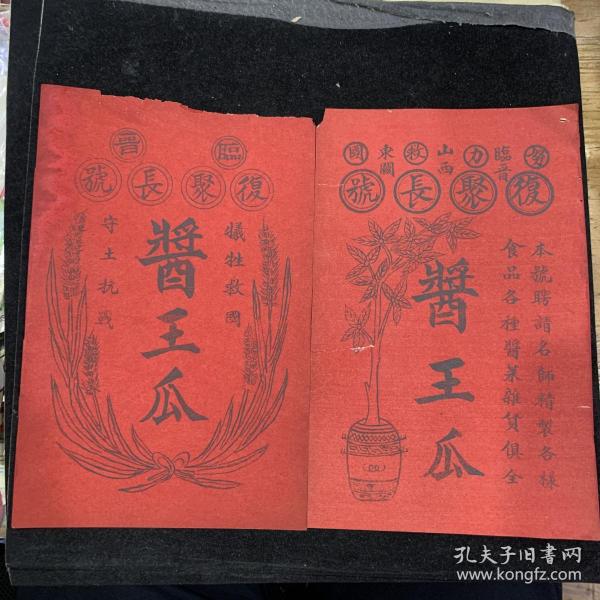 臨晉
復聚長號
犧牲救國
醬王瓜
守土抗戰
努力救國
臨晉
山西
東關
復聚長號
本號聘請名師精製各樣
食品各種醬菜雜貨俱全
醬王瓜
孔夫子旧书网
www.kongfz.com